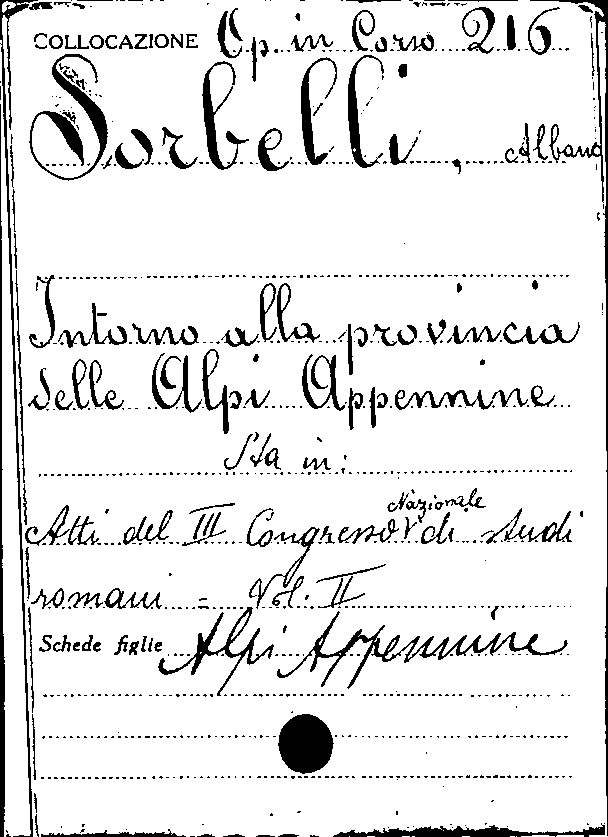 COLLOCAZIONE Op. in Corso 216
Sorbelli, Albano
Intorno alla provincia
delle Alpi Appennine
Sta in:
Nazionale
Atti del III Congresso di studi
romani = Vol. II
Schede figlie Alpi Appennine